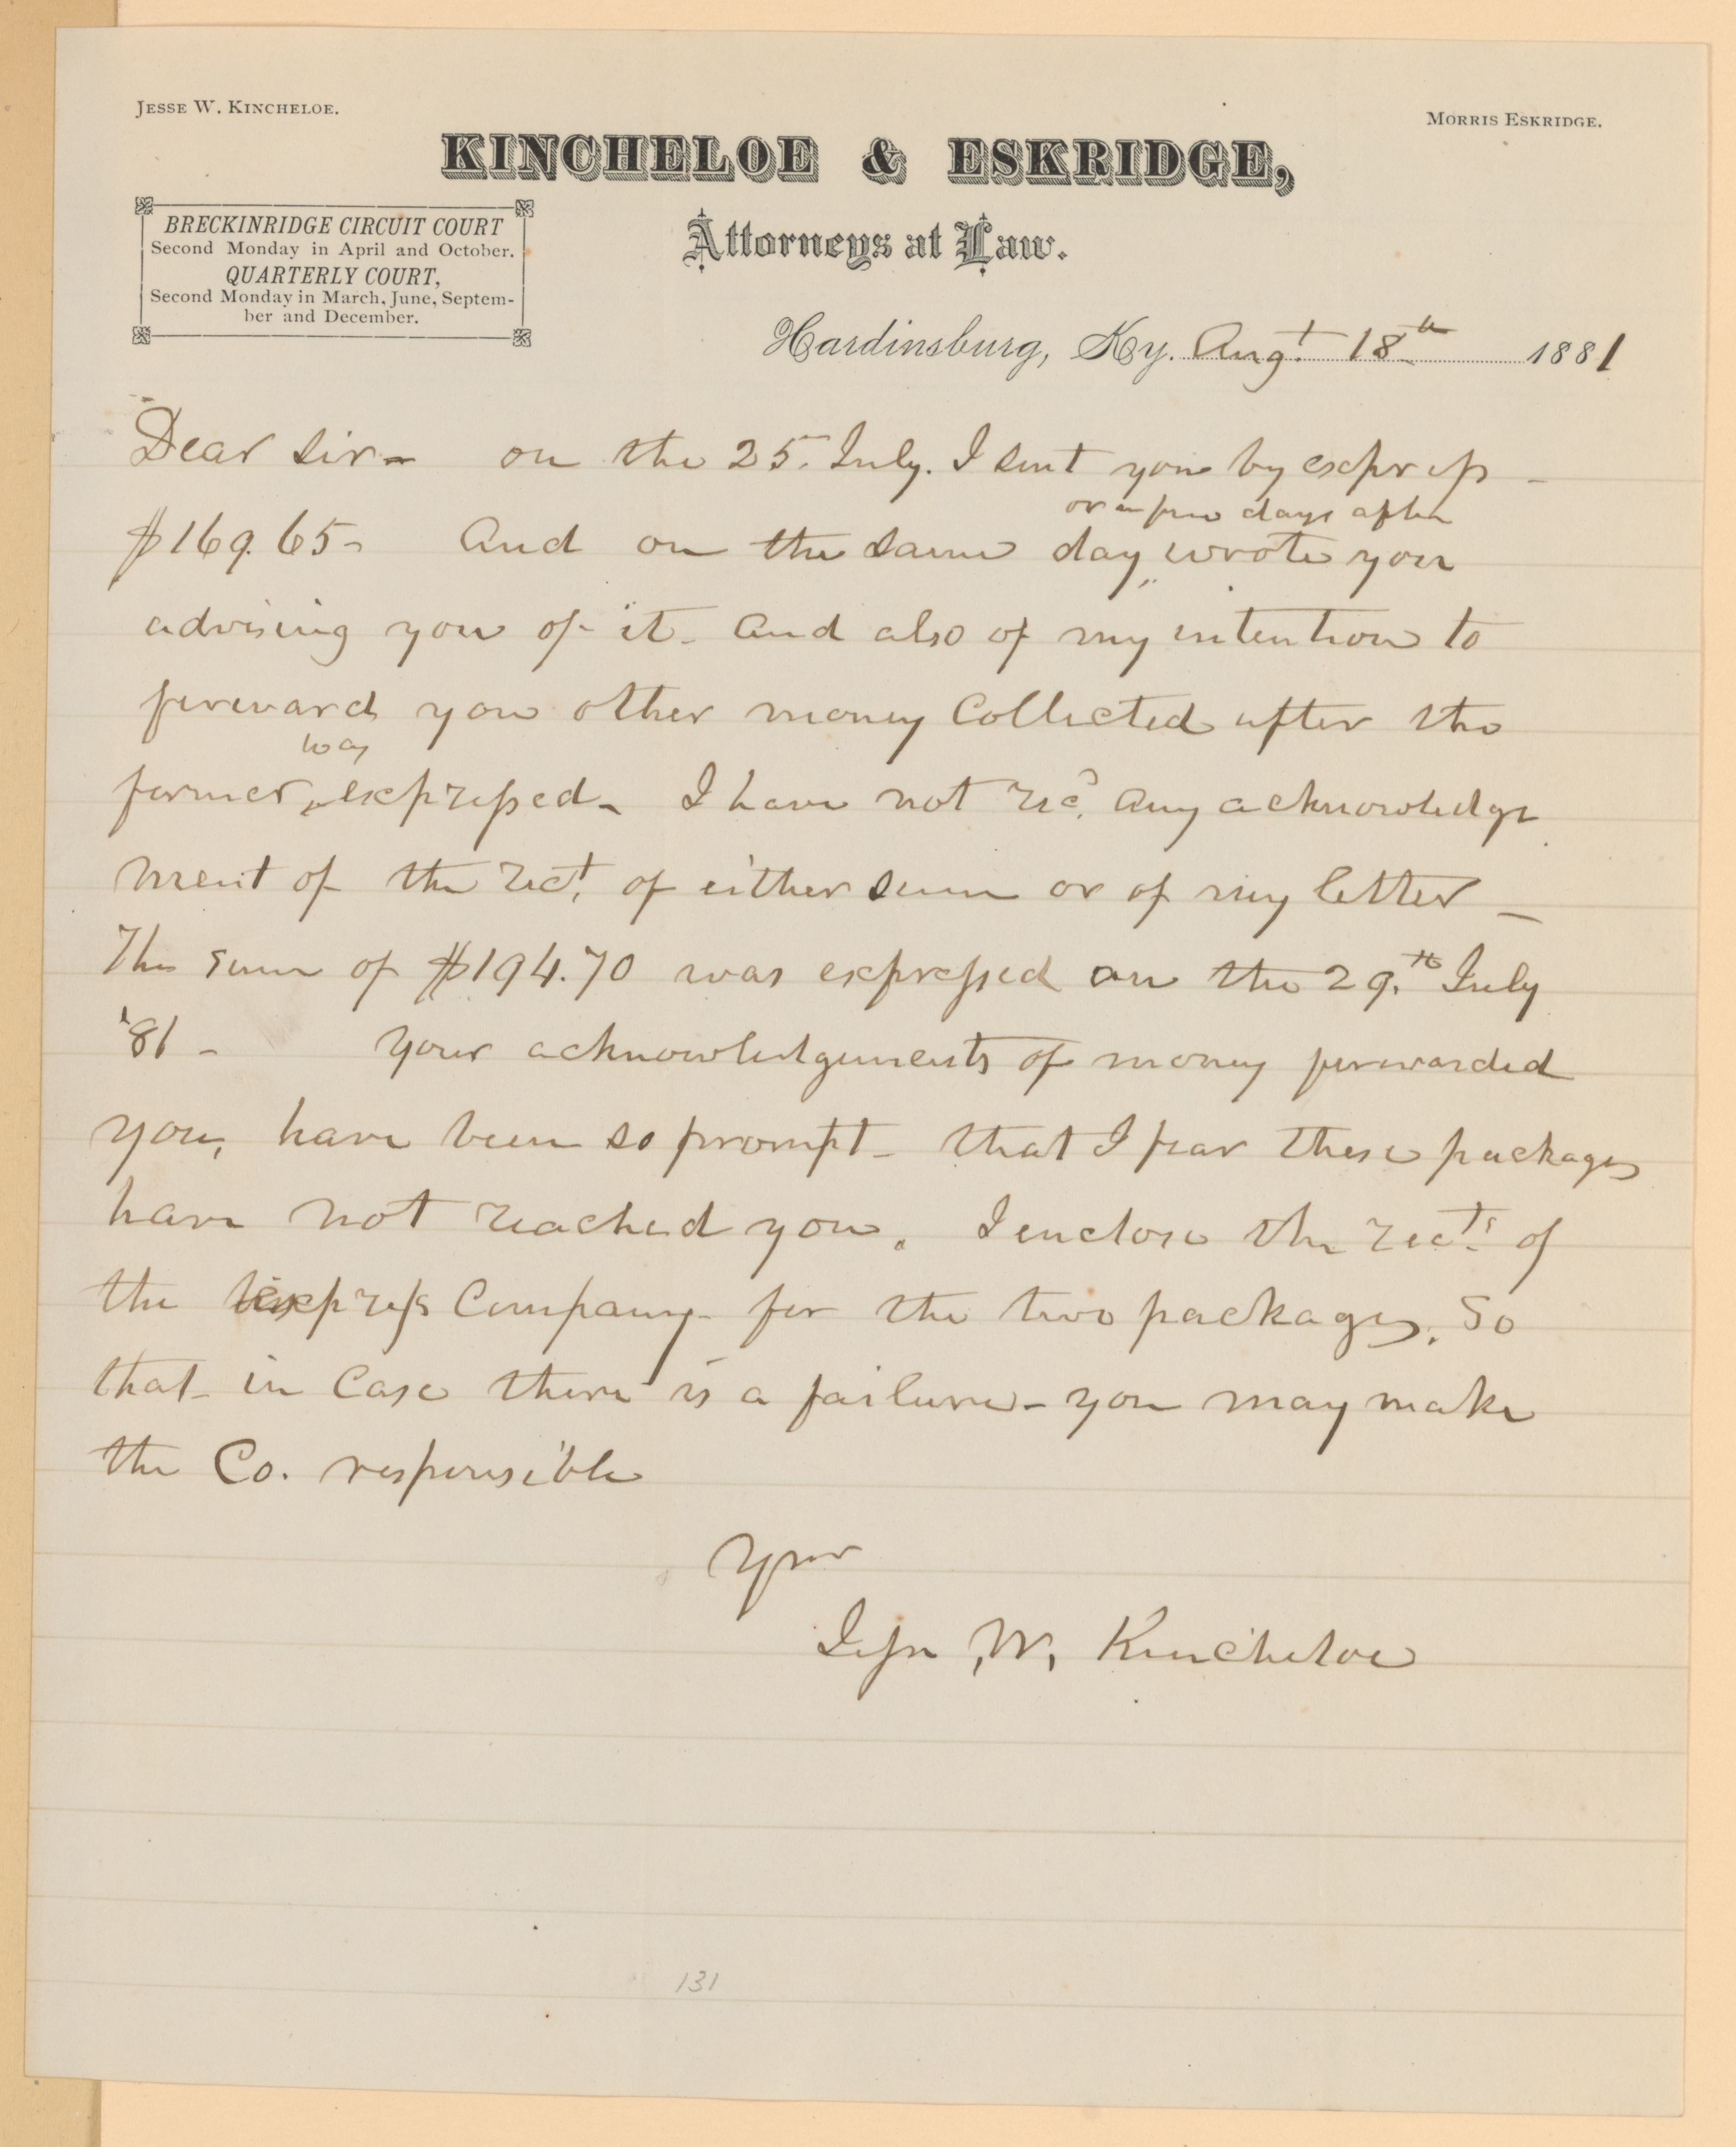 JESSE W. KINCHELOE.
MORRIS ESKRIDGE.
KINCHELOE & ESKRIDGE,
Attorneys at Law.
BRECKINRIDGE CIRCUIT COURT
Second Monday in April and October.
QUARTERLY COURT,
Second Monday in March, June, Septem-
ber and December.
Hardinsburg, Ky. Augt. 18th 1881
Dear Sir - on the 25. July. I sent you by express -
or a few days after
$169.65 - And on the same day, wrote you
advising you of it - and also of my intention to
forward you other money collected after the
was
former, expressed - I have not recd. any acknowledge
ment of the rect. of either sum or of my letter -
The sum of $194.70 was expressed on the 29.th July
'81 - Your acknowledgements of money forwarded
you, have been so prompt - that I fear these packages
have not reached you. I enclose the rects. of
the express Company - for the two packages. So
that - in case there is a failure - you may make
the Co. responsible
Your
Jesse W. Kincheloe
131